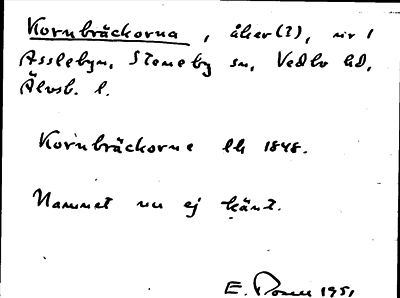 Kornbräckorna, åker(?), nr 1
Asslebyn, Steneby sn, Vedbo hd,
Älvsb. l.
Kornbräckorne lh 1848.
Namnet nu ej känt.
E. 1951